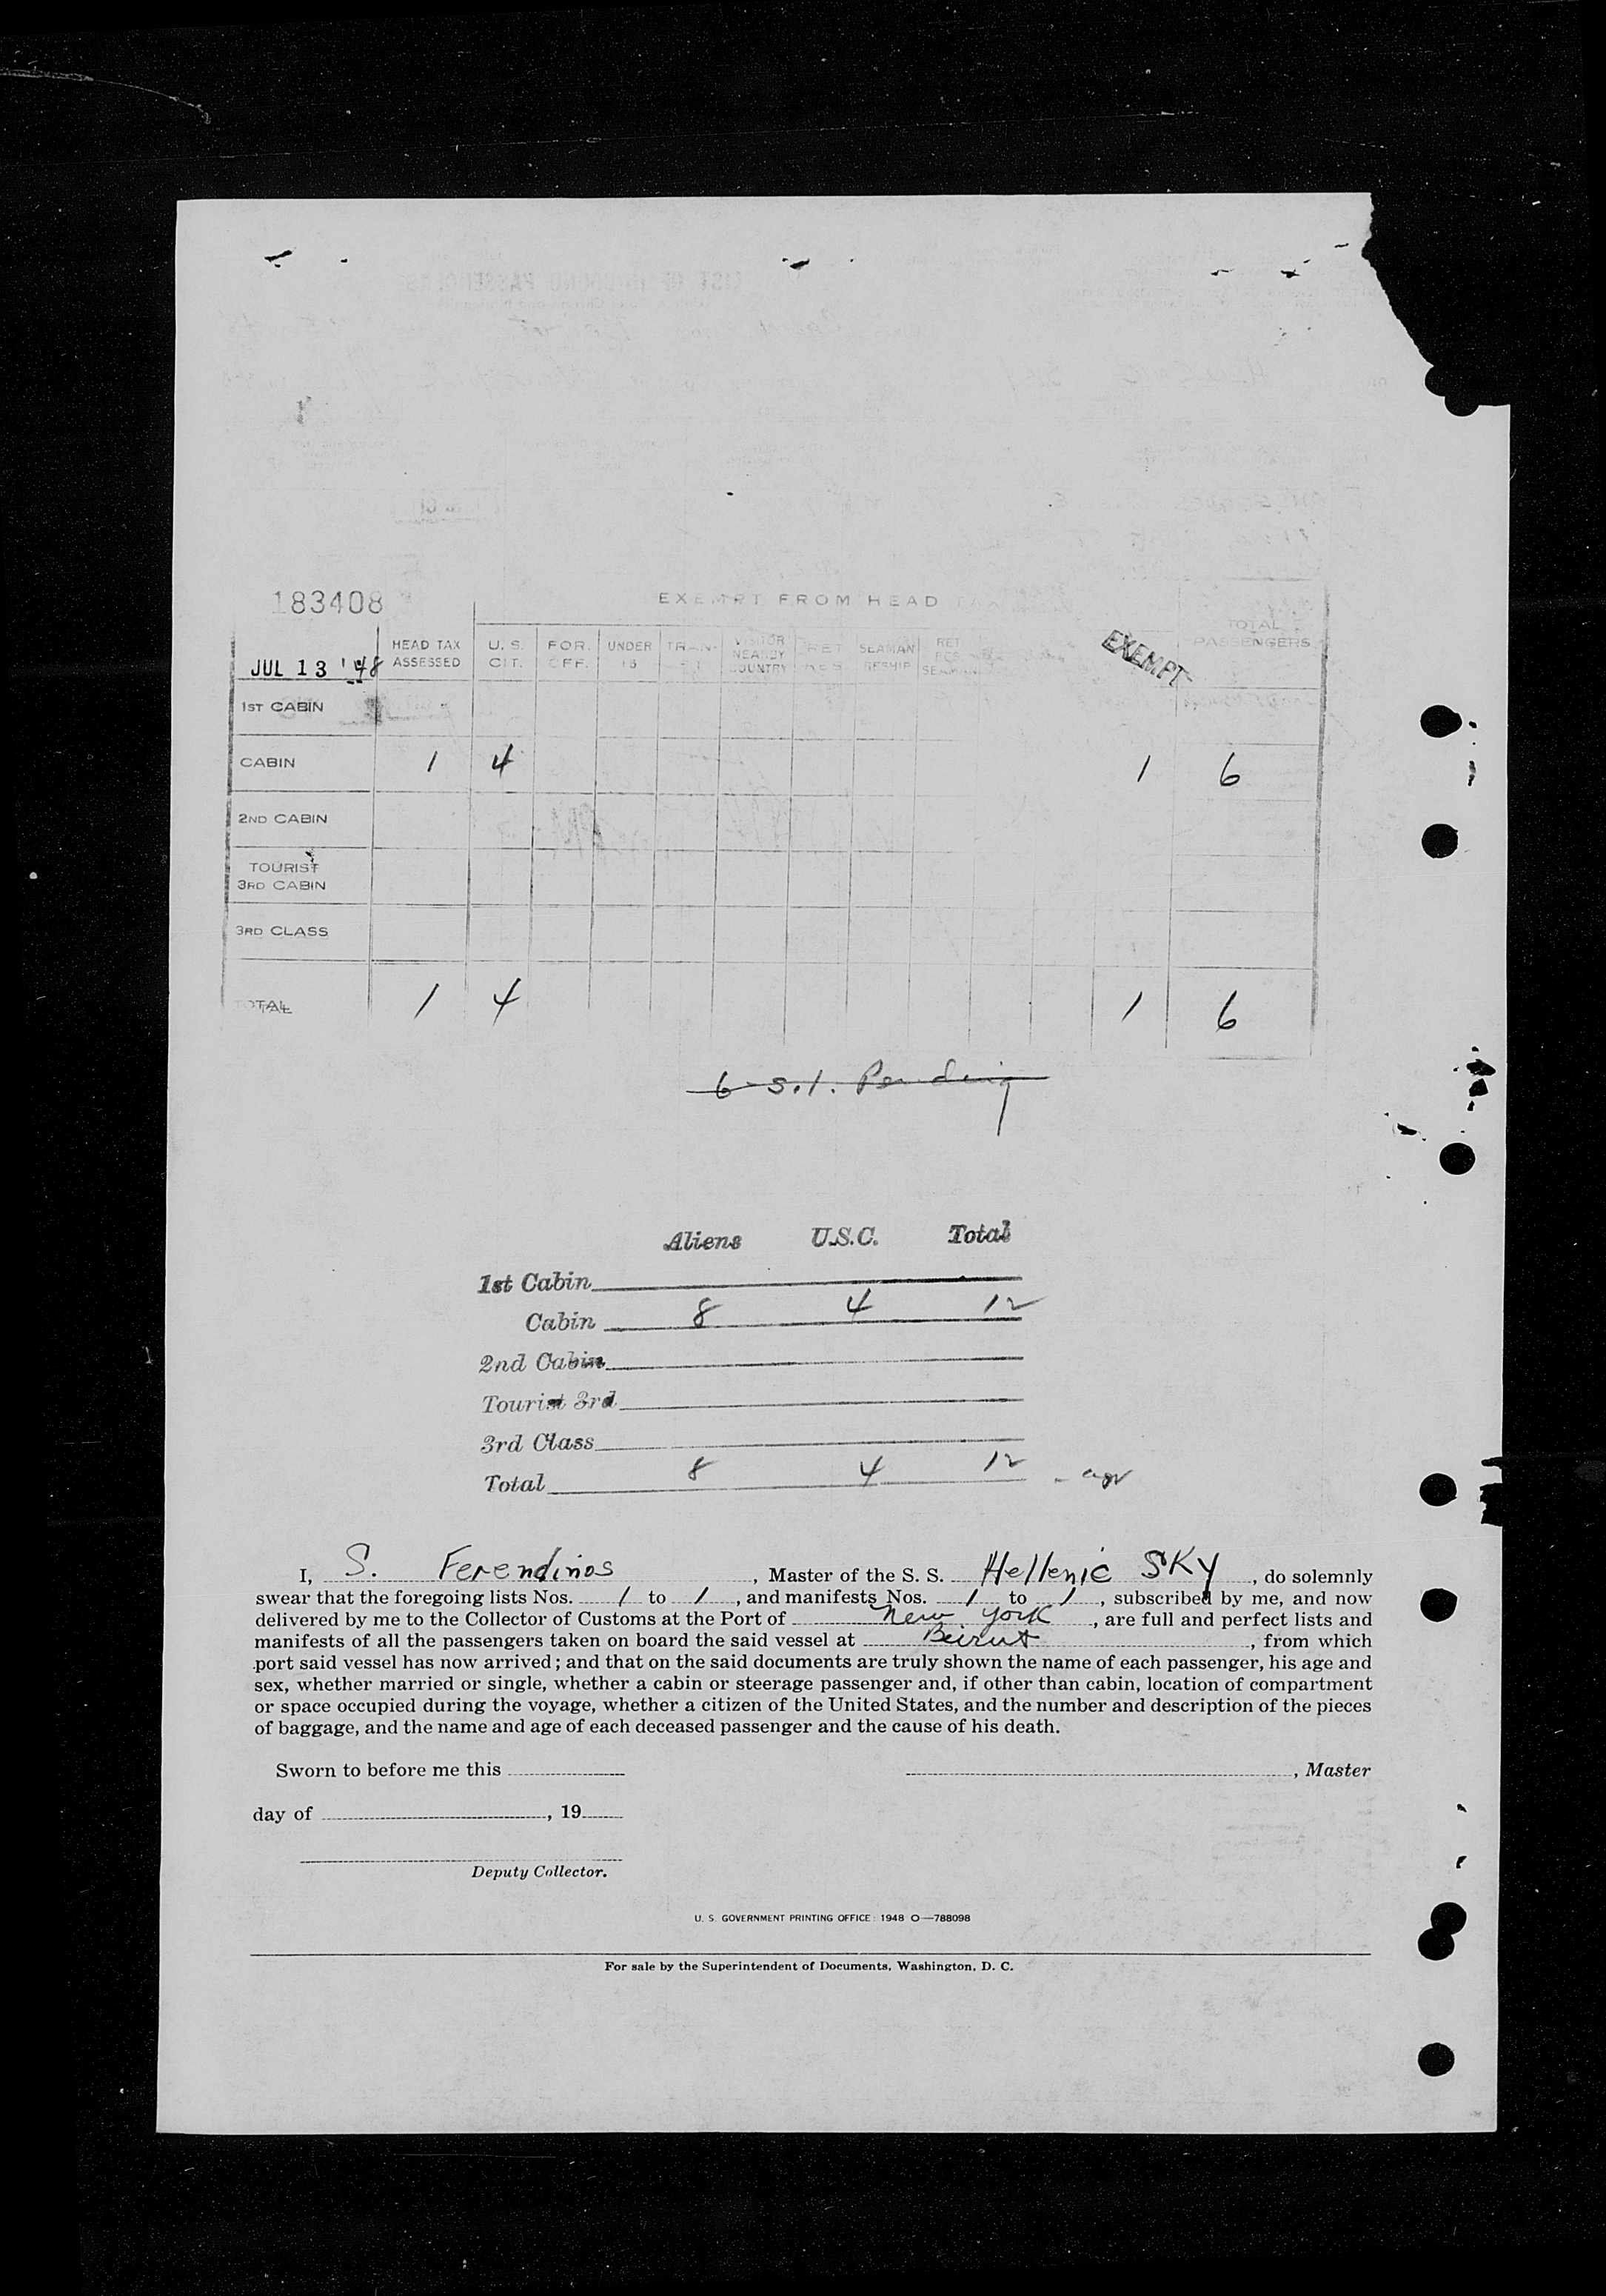 183408
EXEMPT FROM HEAD TAX
JUL 13 '48
HEAD TAX ASSESSED
U. S. CIT.
FOR. OFF.
UNDER 16
VISITOR NEARBY COUNTRY
SEAMAN
EXEMPT
TOTAL PASSENGERS
1ST CABIN
CABIN 1 4 1 6
2ND CABIN
TOURIST
3RD CABIN
3RD CLASS
TOTAL 1 4 1 6
6 - S.I. Pending
Aliens U.S.C. Total
1st Cabin
Cabin 8 4 12
2nd Cabin
Tourist 3rd
3rd Class
Total 8 4 12
I, S. Ferendinos, Master of the S. S. Hellenic SKY, do solemnly
swear that the foregoing lists Nos. 1 to 1, and manifests Nos. 1 to 1, subscribed by me, and now
delivered by me to the Collector of Customs at the Port of New York, are full and perfect lists and
manifests of all the passengers taken on board the said vessel at Beirut, from which
port said vessel has now arrived; and that on the said documents are truly shown the name of each passenger, his age and
sex, whether married or single, whether a cabin or steerage passenger and, if other than cabin, location of compartment
or space occupied during the voyage, whether a citizen of the United States, and the number and description of the pieces
of baggage, and the name and age of each deceased passenger and the cause of his death.
Sworn to before me this , Master
day of , 19
Deputy Collector.
U. S. GOVERNMENT PRINTING OFFICE: 1948 O—788098
For sale by the Superintendent of Documents, Washington, D. C.